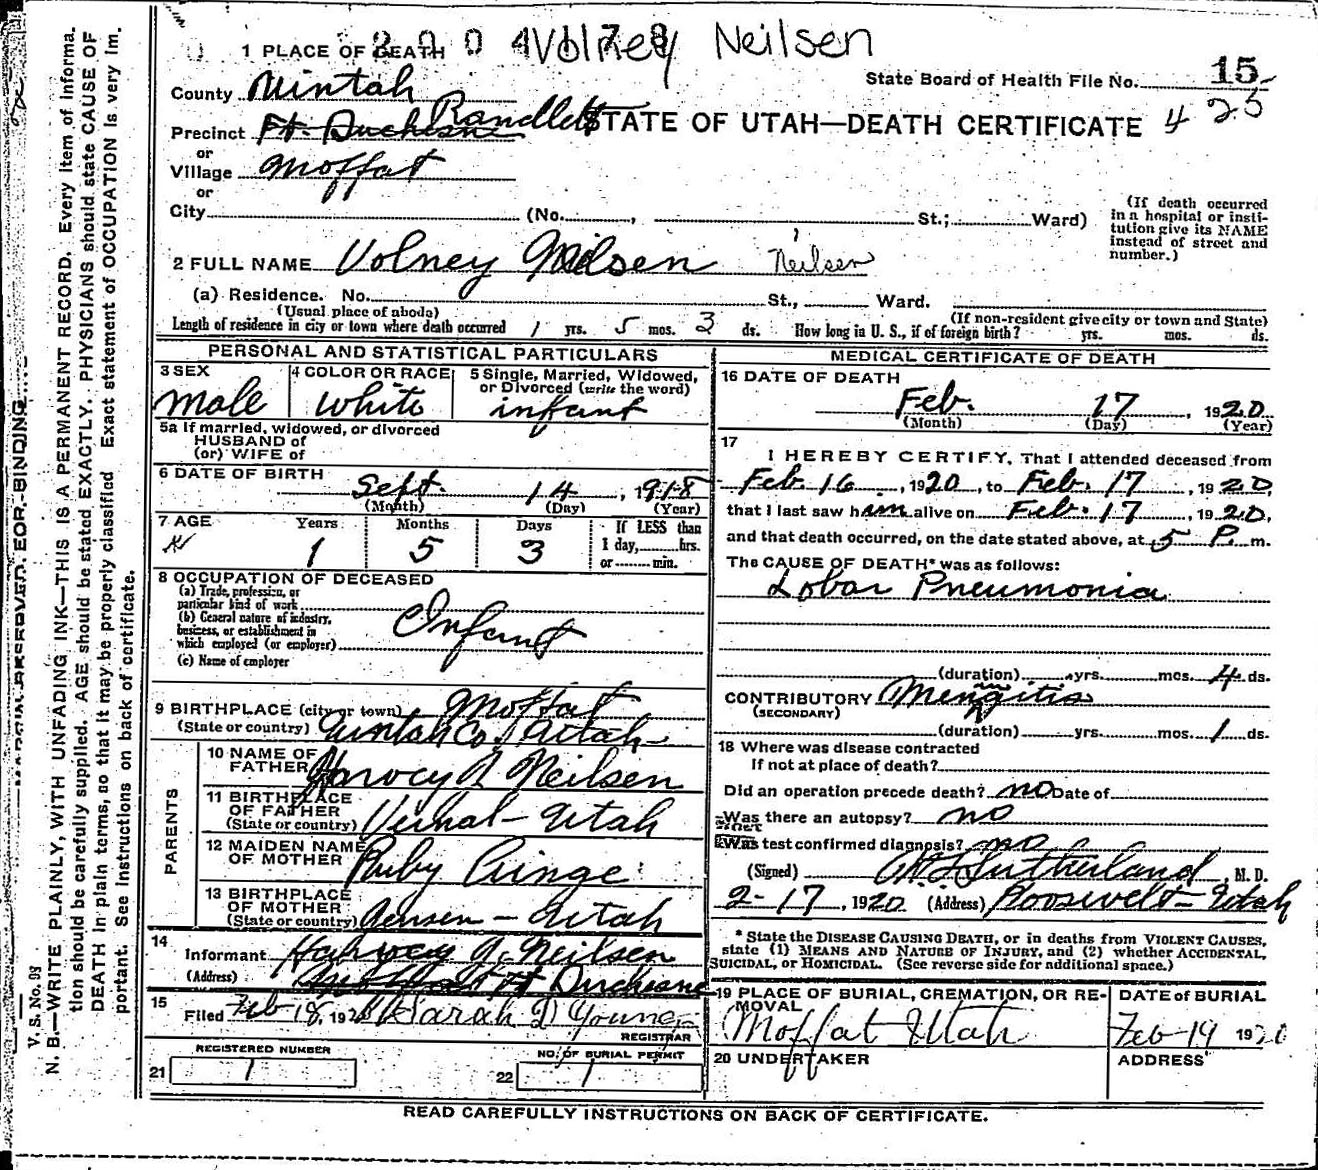 2004178 Volney Neilsen
1 PLACE OF DEATH
State Board of Health File No. 15
425
County Uintah
Precinct Ft. Duchesne Randlett
STATE OF UTAH—DEATH CERTIFICATE
or
Village Moffat
or
City (No. , St.; Ward)
(If death occurred in a hospital or insti-
tution give its NAME instead of street and number.)
2 FULL NAME Volney Neilsen Neilsen
(a) Residence. No. St., Ward.
(Usual place of abode) (If non-resident give city or town and State)
Length of residence in city or town where death occurred 1 yrs. 5 mos. 3 ds. How long in U. S., if of foreign birth? yrs. mos. ds.
PERSONAL AND STATISTICAL PARTICULARS
3 SEX Male
4 COLOR OR RACE White
5 Single, Married, Widowed, or Divorced (write the word) infant
5a If married, widowed, or divorced
HUSBAND of
(or) WIFE of
6 DATE OF BIRTH Sept. 14, 1918
(Month) (Day) (Year)
7 AGE Years Months Days If LESS than
1 5 3 1 day, hrs.
or min.
8 OCCUPATION OF DECEASED
(a) Trade, profession, or
particular kind of work
(b) General nature of industry,
business, or establishment in
which employed (or employer) Infant
(c) Name of employer
9 BIRTHPLACE (city or town) Moffat
(State or country) Uintah Co Utah
PARENTS
10 NAME OF FATHER Neilsen
11 BIRTHPLACE OF FATHER
(State or country) Vernal - Utah
12 MAIDEN NAME OF MOTHER Ruby
13 BIRTHPLACE OF MOTHER
(State or country) Jensen - Utah
14
Informant Neilsen
(Address) Ft Duchesne
15
Filed Feb 18, 1920 Sarah D Young
REGISTRAR
REGISTERED NUMBER
21 1
NO. OF BURIAL PERMIT
22 1
MEDICAL CERTIFICATE OF DEATH
16 DATE OF DEATH
Feb. 17, 1920
(Month) (Day) (Year)
17
I HEREBY CERTIFY, That I attended deceased from
Feb. 16, 1920, to Feb. 17, 1920,
that I last saw him alive on Feb. 17, 1920,
and that death occurred, on the date stated above, at 5 P. m.
The CAUSE OF DEATH* was as follows:
Lobar Pneumonia
(duration) yrs. mos. 4 ds.
CONTRIBUTORY Meningitis
(SECONDARY)
(duration) yrs. mos. 1 ds.
18 Where was disease contracted
If not at place of death?
Did an operation precede death? no Date of
Was there an autopsy? no
Was test confirmed diagnosis? no
(Signed) Sutherland, M. D.
2-17, 1920 (Address) Roosevelt - Utah
* State the DISEASE CAUSING DEATH, or in deaths from VIOLENT CAUSES,
state (1) MEANS AND NATURE OF INJURY, and (2) whether ACCIDENTAL,
SUICIDAL, or HOMICIDAL. (See reverse side for additional space.)
19 PLACE OF BURIAL, CREMATION, OR RE-
MOVAL
Moffat Utah
DATE of BURIAL
Feb 19 1920
20 UNDERTAKER
ADDRESS
READ CAREFULLY INSTRUCTIONS ON BACK OF CERTIFICATE.
V. S. No. 98
N. B.—WRITE PLAINLY, WITH UNFADING INK—THIS IS A PERMANENT RECORD. Every item of informa-
tion should be carefully supplied. AGE should be stated EXACTLY. PHYSICIANS should state CAUSE OF
DEATH in plain terms, so that it may be properly classified Exact statement of OCCUPATION is very im-
portant. See instructions on back of certificate.
MARGIN RESERVED FOR BINDING